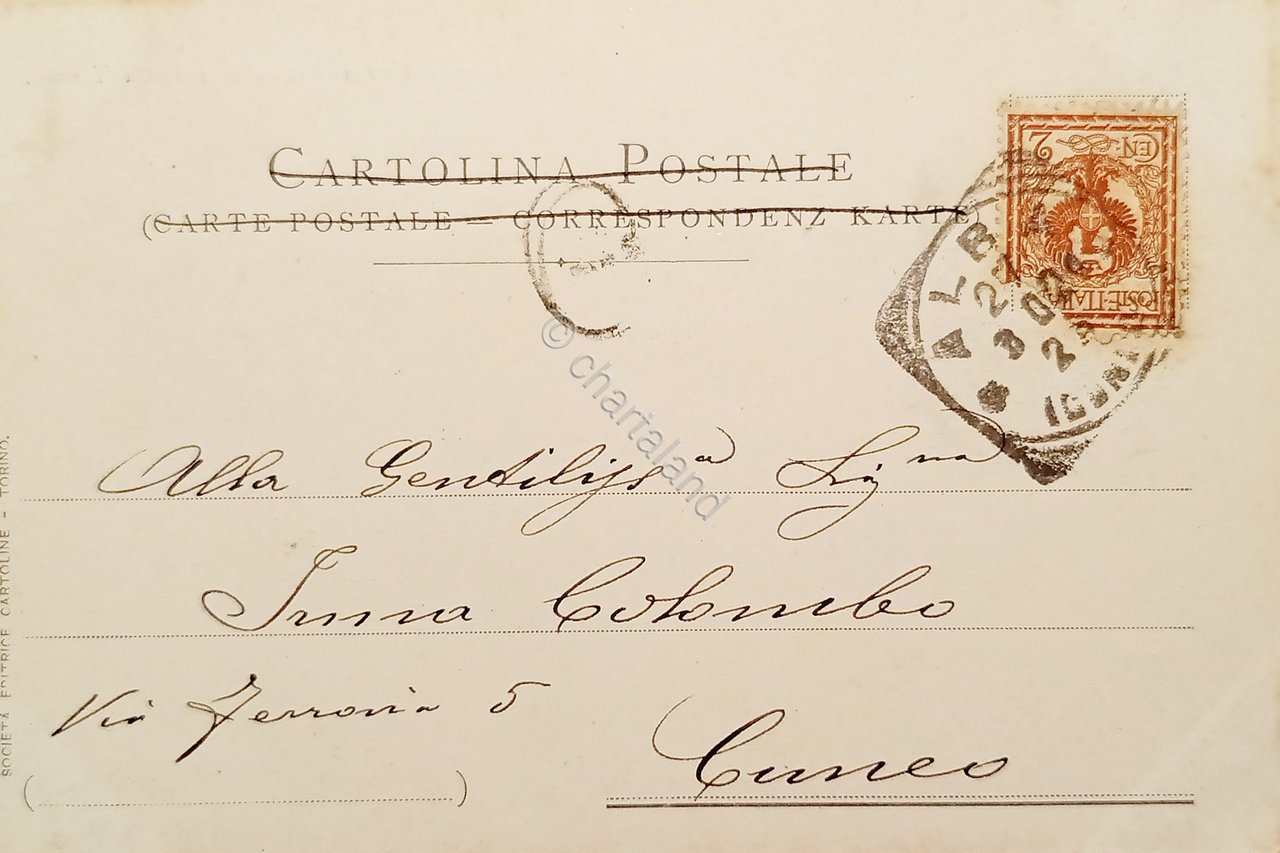 CARTOLINA POSTALE
(CARTE POSTALE — CORRESPONDENZ KARTE)
CEN: 2
POSTE·ITAL
ALBA
(CUN
© chartaland
Alla Gentiliss.a Sig.na
Irma Colombo
Via Ferrovia 5
Cuneo
SOCIETÀ EDITRICE CARTOLINE - TORINO.